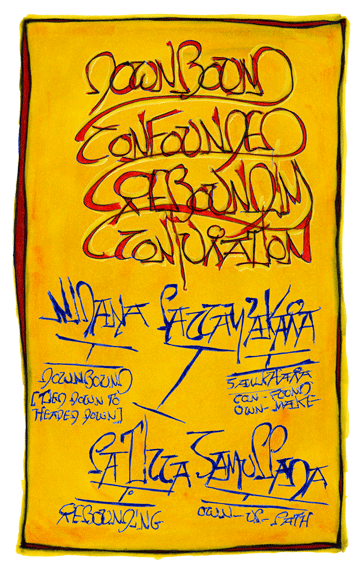 DOWNBOUND
CONFOUNDED
REBOUNDIM
CONFURATION
NIDANA PACCAYAKARA
DOWNBOUND
[TIED DOWN TO
HEADED DOWN]
SANKHARA
CON-FOUND
OWN-MAKE
PATICCA SAMUPPADA
REBOUNDING
OWN-UP-PATH